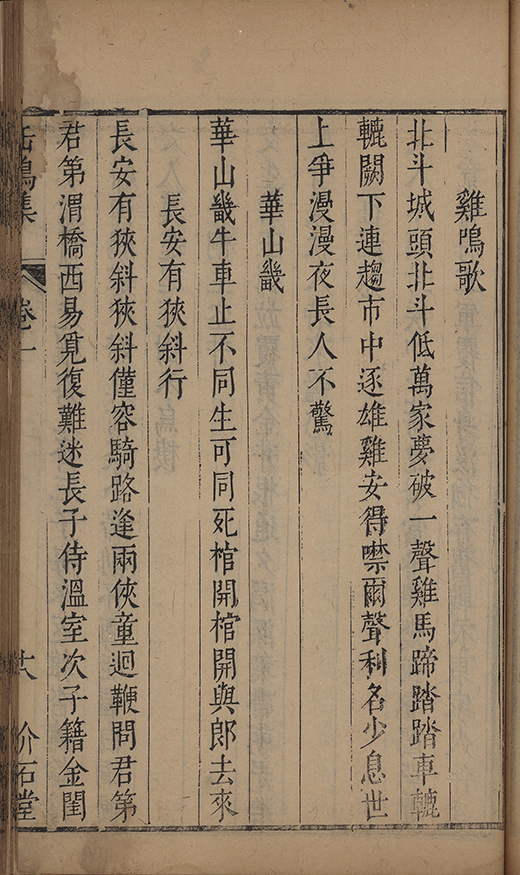 雞鳴歌
北斗城頭北斗低萬家夢破一聲雞馬蹄踏踏車轆
轆闕下連趨市中逐雄雞安得噤爾聲利名少息世
上爭漫漫夜長人不驚
華山畿
華山畿牛車止不同生可同死棺開棺開與郎去來
長安有狹斜行
長安有狹斜狹斜僅容騎路逢兩俠童迴鞭問君第
君第渭橋西易覓復難迷長子侍溫室次子籍金閨
鳴集
卷一
介石堂